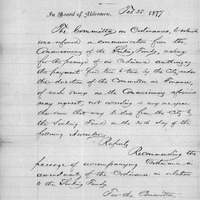 In Board of Aldermen, Feb 28 1877
The Committee on Ordinances, to which
was referred a communication from the
Commissioners of the Sinking Funds, asking
for the passage of an Ordinance authorizing
the payment from time to time to the City under
the direction of the Committee on Finance,
of such sums as the Commissioners aforesaid
may request, not exceeding in any one year
the sum that may be due from the City to
the Sinking Fund on the 30th day of the
following November
Report,
Recommending the
passage of accompanying Ordinance in
amendment of the Ordinance in relation
to the Sinking Funds,
For the Committee